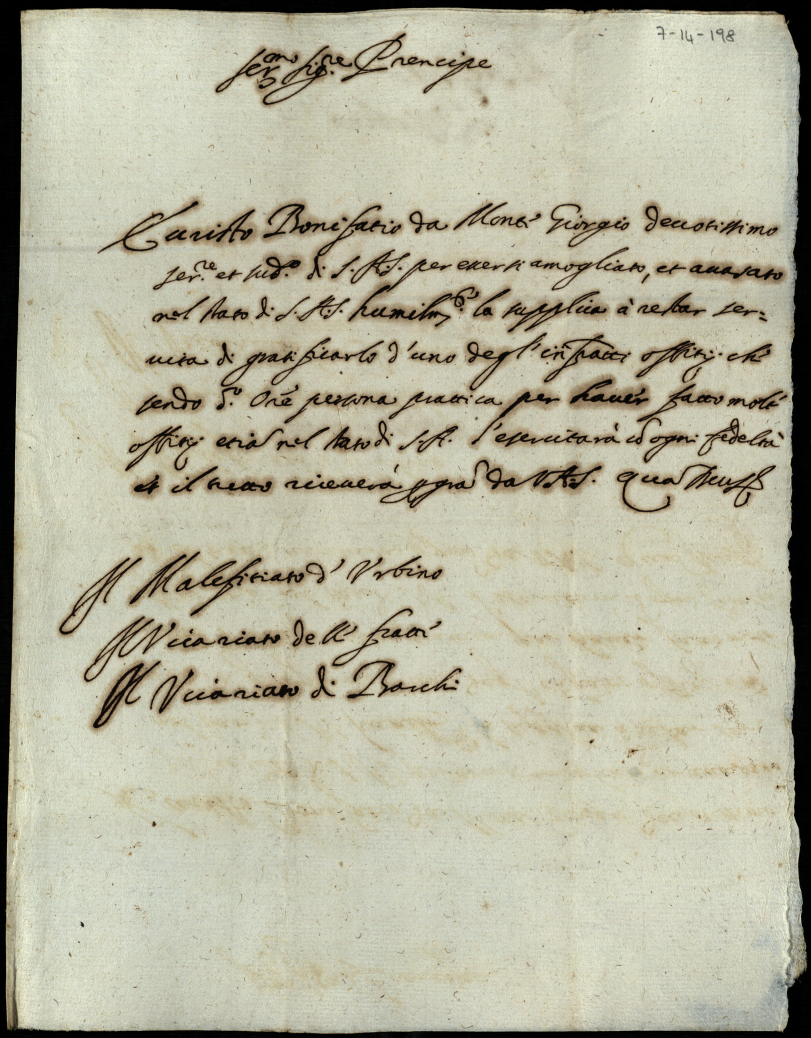 7-14-198
Ser.mo Sig.re Prencipe
Euristo Bonifatio da Monte Giorgio deuotissimo
ser.re et sud.o di S. A. S. per esersi amogliato, et accasato
nel stato di S. A. S. humilm.te la supplica à restar ser=
uita di gratificarlo d'uno degl'infratti offitij ché
sendo d.o Ore persona prattica per hauer fatto molti
offitij etia nel stato di S. A. l'esercitarà co ogni fedeltà
et il tutto riceuerà gra da V. A. S. qua Deus
Il Malefitiato d' Vrbino
Il Vicariato delle fratte
Il Vicariato di Barchi